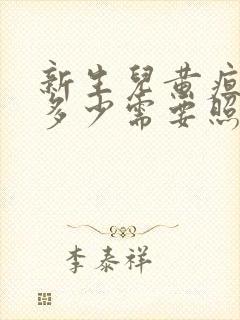 新生儿黄疸
多少需要照
李泰祥